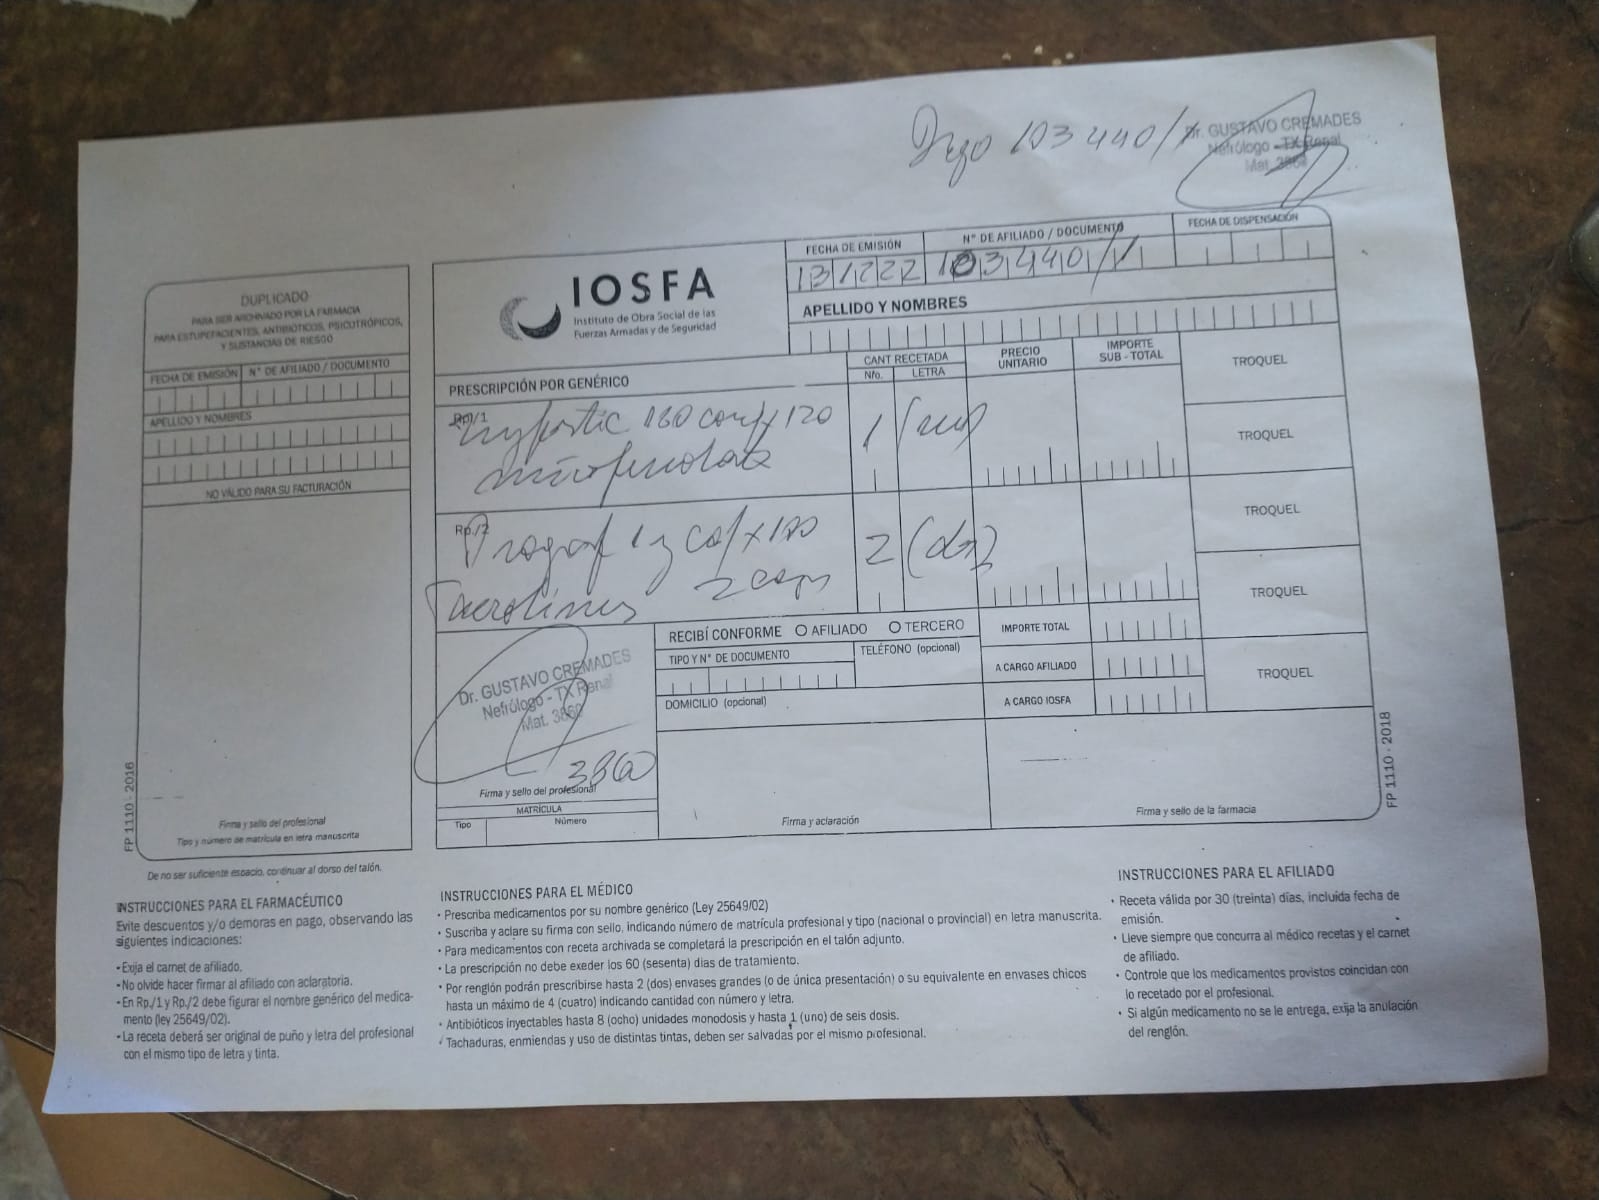 Digo 103 440/1
Dr. GUSTAVO CREMADES
Nefrólogo - TX Renal
Mat. 3860
DUPLICADO
PARA SER ARCHIVADO POR LA FARMACIA
PARA ESTUPEFACIENTES, ANTIBIÓTICOS, PSICOTRÓPICOS,
Y SUSTANCIAS DE RIESGO
FECHA DE EMISIÓN
Nº DE AFILIADO / DOCUMENTO
APELLIDO Y NOMBRES
NO VÁLIDO PARA SU FACTURACIÓN
Firma y sello del profesional
Tipo y número de matrícula en letra manuscrita
FP 1110 - 2016
De no ser suficiente espacio, continuar al dorso del talón.
IOSFA
Instituto de Obra Social de las
Fuerzas Armadas y de Seguridad
FECHA DE EMISIÓN
Nº DE AFILIADO / DOCUMENTO
FECHA DE DISPENSACIÓN
131222
103440/1
APELLIDO Y NOMBRES
PRESCRIPCIÓN POR GENÉRICO
CANT RECETADA
Nro.
LETRA
PRECIO
UNITARIO
IMPORTE
SUB - TOTAL
TROQUEL
Rp./1
Myfortic 180 comp x 120
micofenolato
1 (un)
TROQUEL
Rp./2
Prograf 1 g x 100
Tacrolimus 2 caps
2 (dos)
TROQUEL
TROQUEL
TROQUEL
Dr. GUSTAVO CREMADES
Nefrólogo - TX Renal
Mat. 3860
3860
Firma y sello del profesional
MATRÍCULA
Tipo
Número
RECIBÍ CONFORME O AFILIADO O TERCERO
TIPO Y Nº DE DOCUMENTO
TELÉFONO (opcional)
DOMICILIO (opcional)
IMPORTE TOTAL
A CARGO AFILIADO
A CARGO IOSFA
Firma y aclaración
Firma y sello de la farmacia
FP 1110 - 2018
INSTRUCCIONES PARA EL FARMACÉUTICO
Evite descuentos y/o demoras en pago, observando las
siguientes indicaciones:
• Exija el carnet de afiliado.
• No olvide hacer firmar al afiliado con aclaratoria.
• En Rp./1 y Rp./2 debe figurar el nombre genérico del medica-
mento (ley 25649/02).
• La receta deberá ser original de puño y letra del profesional
con el mismo tipo de letra y tinta.
INSTRUCCIONES PARA EL MÉDICO
• Prescriba medicamentos por su nombre genérico (Ley 25649/02)
• Suscriba y aclare su firma con sello, indicando número de matrícula profesional y tipo (nacional o provincial) en letra manuscrita.
• Para medicamentos con receta archivada se completará la prescripción en el talón adjunto.
• La prescripción no debe exeder los 60 (sesenta) días de tratamiento.
• Por renglón podrán prescribirse hasta 2 (dos) envases grandes (o de única presentación) o su equivalente en envases chicos
hasta un máximo de 4 (cuatro) indicando cantidad con número y letra.
• Antibióticos inyectables hasta 8 (ocho) unidades monodosis y hasta 1 (uno) de seis dosis.
• Tachaduras, enmiendas y uso de distintas tintas, deben ser salvadas por el mismo profesional.
INSTRUCCIONES PARA EL AFILIADO
• Receta válida por 30 (treinta) días, incluida fecha de
emisión.
• Lleve siempre que concurra al médico recetas y el carnet
de afiliado.
• Controle que los medicamentos provistos coincidan con
lo recetado por el profesional.
• Si algún medicamento no se le entrega, exija la anulación
del renglón.